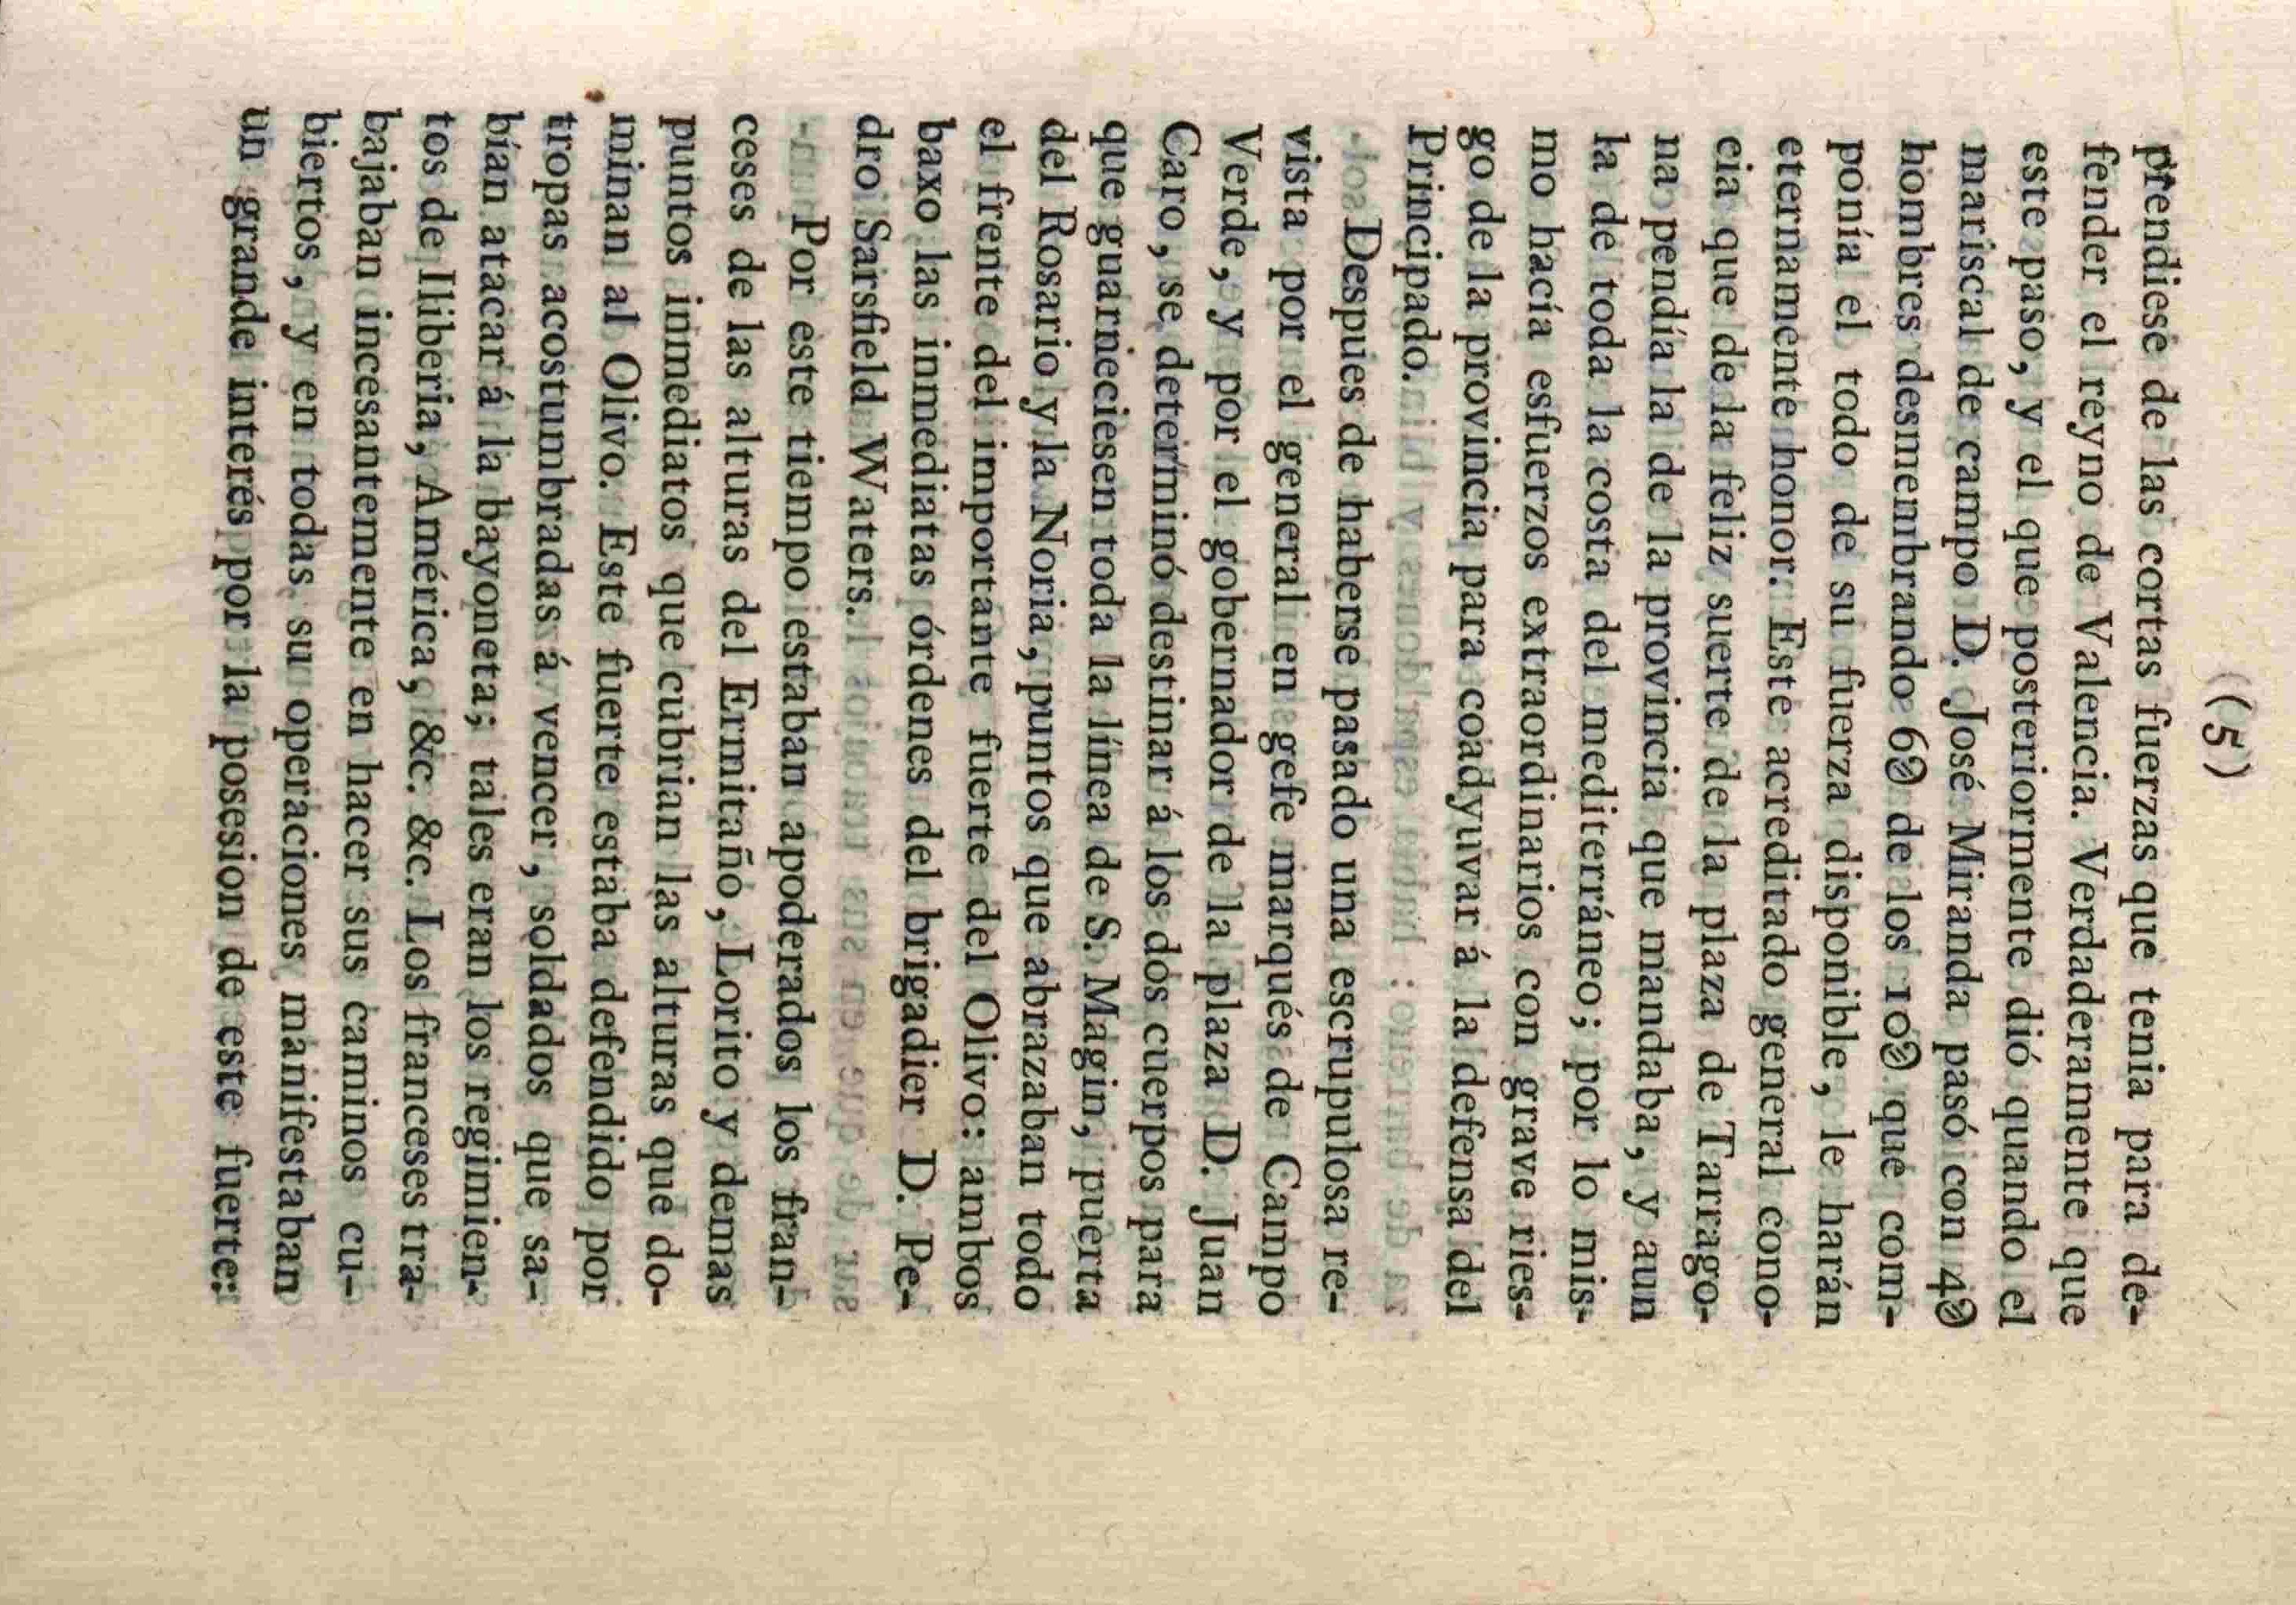 (5)
prendiese de las cortas fuerzas que tenia para de-
fender el reyno de Valencia. Verdaderamente que
este paso, y el que posteriormente dió quando el
mariscal de campo D. José Miranda pasó con 4Ꝺ
hombres desmembrando 6Ꝺ de los 10Ꝺ que com-
ponía el todo de su fuerza disponible, le harán
eternamente honor. Este acreditado general cono-
cia que de la feliz suerte de la plaza de Tarrago-
na pendía la de la provincia que mandaba, y aun
la de toda la costa del mediterráneo; por lo mis-
mo hacía esfuerzos extraordinarios con grave ries-
go de la provincia para coadyuvar á la defensa del
Principado.
Despues de haberse pasado una escrupulosa re-
vista por el general en gefe marqués de Campo
Verde, y por el gobernador de la plaza D. Juan
Caro, se determinó destinar á los dos cuerpos para
que guarneciesen toda la línea de S. Magin, puerta
del Rosario y la Noria, puntos que abrazaban todo
el frente del importante fuerte del Olivo: ambos
baxo las inmediatas órdenes del brigadier D. Pe-
dro Sarsfield Waters.
Por este tiempo estaban apoderados los fran-
ceses de las alturas del Ermitaño, Lorito y demas
puntos inmediatos que cubrian las alturas que do-
minan al Olivo. Este fuerte estaba defendido por
tropas acostumbradas á vencer, soldados que sa-
bían atacar á la bayoneta; tales eran los regimien-
tos de Iliberia, América, &c. &c. Los franceses tra-
bajaban incesantemente en hacer sus caminos cu-
biertos, y en todas su operaciones manifestaban
un grande interés por la posesion de este fuerte: